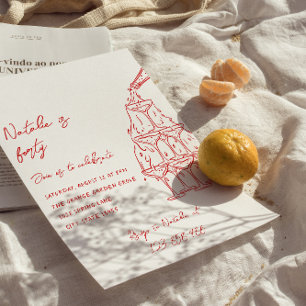 vindo ao no
UNIVER
Natalie is
forty
Join us to celebrate
SATURDAY, AUGUST 12 AT 8PM
THE ORANGE GARDEN GROVE
1902 SPRING LANE
CITY, STATE
rsvp to Natalie at
123 888 988